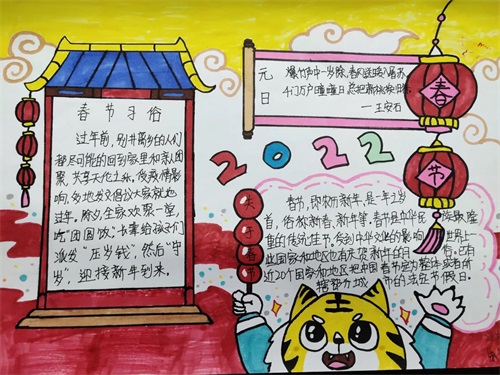 春节习俗
过年前，别井离乡的人们
都尽可能的回到家里和亲人团
聚，共享天伦之乐。受疫情影
响，多地发文倡议大家就地
过年。除夕，全家欢聚一堂，
吃"团圆饭"，长辈给孩子们
派发"压岁钱"，然后"守
岁"，迎接新年到来。
元日
爆竹声中一岁除，春风送暖入屠苏
千门万户曈曈日，总把新桃换旧符。
—王安石
春节
2022
春节，即农历新年，是一年之岁
首，俗称新春、新年等。春节是中华民族最隆
重的传统佳节。受到中华文化的影响，世界上一
些国家和地区也有庆贺新年的习俗。已有
近20个国家和地区把中国春节定为整体或者所
辖部分城市的法定节假日。